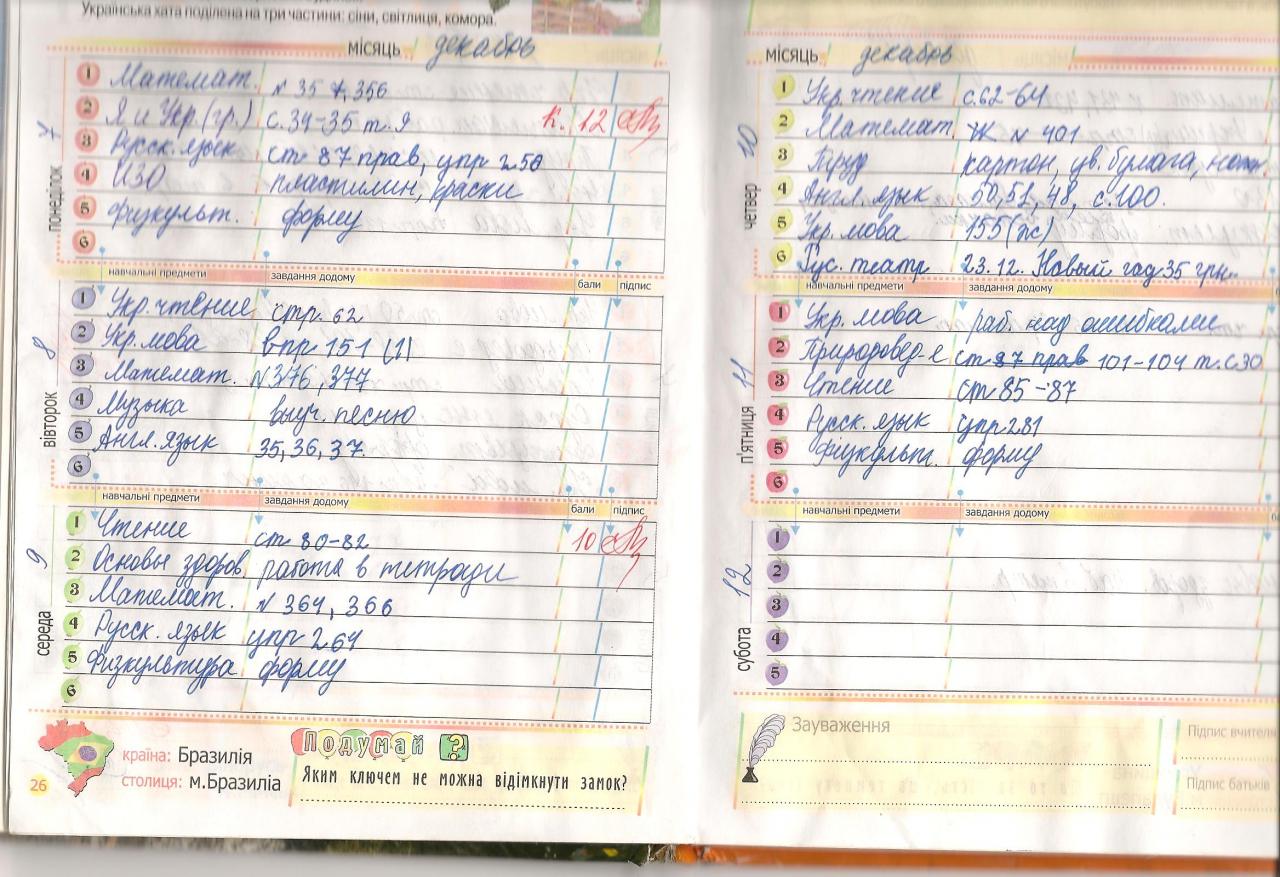 Українська хата поділена на три частини: сіни, світлиця, комора.
місяць декабрь
понеділок 7
1 Математ. № 357, 356
2 Я и Укр. (гр.) с.34-35 т. Я К. 12
3 Русск. язык ст 87 прав, упр 250
4 ИЗО пластилин, краски
5 Физкульт. форму
6
навчальні предмети завдання додому бали підпис
вівторок 8
1 Укр. чтение стр. 62
2 Укр. мова впр 151 (1)
3 Математ. №376, 377
4 Музыка выуч. песню
5 Англ. язык 35, 36, 37
6
навчальні предмети завдання додому бали підпис
середа 9
1 Чтение ст 80-82 10
2 Основы здоров. работа в тетради
3 Математ. № 364, 366
4 Русск. язык упр 264
5 Физкультура форму
6
країна: Бразилія
столиця: м.Бразиліа
Подумай ?
Яким ключем не можна відімкнути замок?
26
місяць декабрь
четвер 10
1 Укр. чтение с.62-64
2 Математ. № 401
3 Труд картон, цв. бумага, нож.
4 Англ. язык 50, 51, 48, с.100.
5 Укр. мова 155 (пс)
6 Рус. театр 23.12. Новый год 35 грн.
навчальні предмети завдання додому
п'ятниця 11
1 Укр. мова раб. над ошибками
2 Природовед-е ст 87 прав 101-104 т. с30
3 Чтение ст 85-87
4 Русск. язык упр 281
5 Физкульт. форму
6
навчальні предмети завдання додому
субота 12
1
2
3
4
5
Зауваження
Підпис вчителя
Підпис батьків